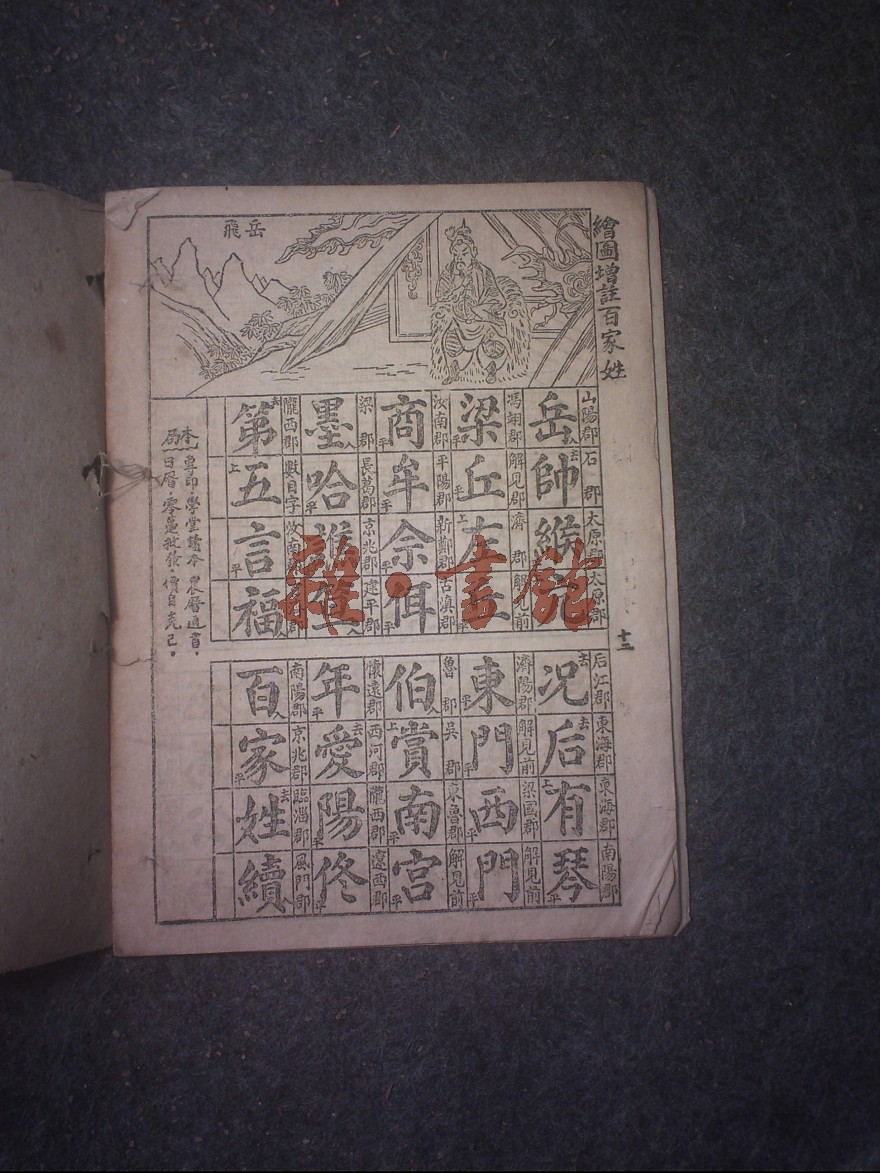 繪圖增註百家姓
岳飛
山陽郡 石郡 太原郡 太原郡
岳帥緱
馮翊郡 解見郡 濟郡 解見前
梁丘左丘
汝南郡 平陽郡 新鄭郡 古滇郡
商牟佘佴
梁郡 長葛郡 京兆郡 建平郡
墨哈
隴西郡 數目字 汝南郡
第五言福
十二
后江郡 東海郡 東海郡 南陽郡
況后有琴
濟陽郡 解見前 梁國郡 解見前
東門西門
魯郡 吳郡 東魯郡 解見前
伯賞南宮
懷遠郡 西河郡 隴西郡 遼西郡
年愛陽佟
南陽郡 京兆郡 臨淄郡 風門郡
百家姓續
本局
專印·學堂讀本·農曆通書·
日曆·零躉批發·價目克己。
雜·書館